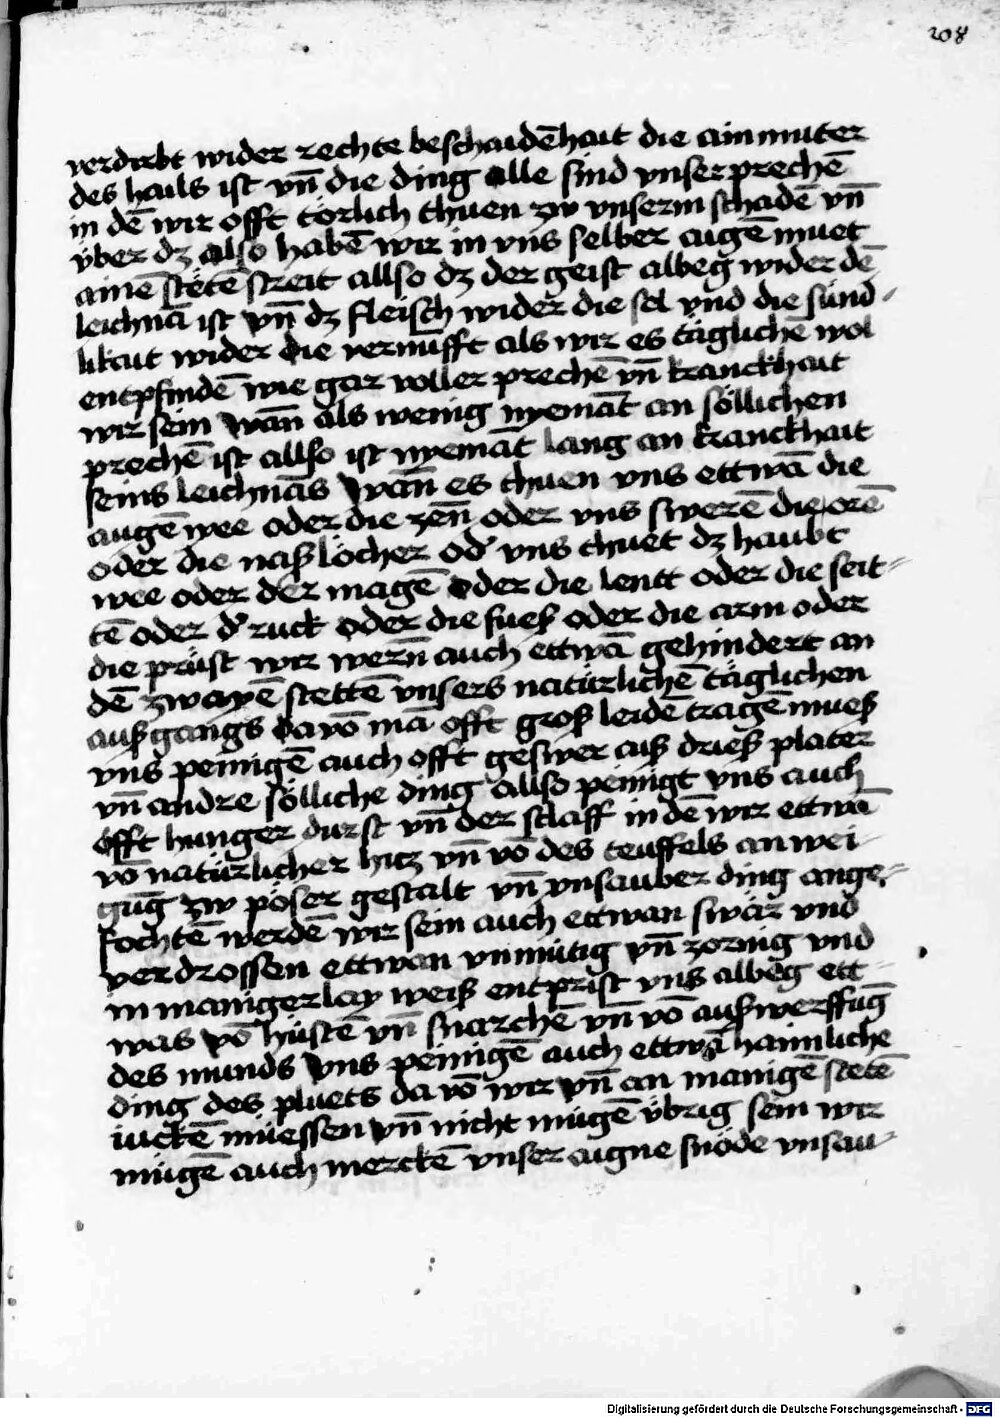 208
verdirbt wider rechte beschaidēhait die ain muter
des hails ist vn̄ die ding alle sind vnser prechē
in dē wir offt törlich thuen zw vnserm schadē vn̄
vber dz also habē wir in vns selber augē muet
ainē stetē streit allso dz der geist albeg wider dē
leichnā ist vn̄ dz fleisch wider die sel vnd die sünd-
likait wider die vernufft als wir es tägliche wol
entpfindē wie gar voller prechē vn̄ kranckhait
wir sein wān als wenig nyemāt an söllichen
prechē ist allso ist nyemāt lang an kranckhait
seins leichnās wān es thuen vns ettwā die
augē wee oder die zen̄ oder vns swerē die orē
oder die nasslöcher od̄ vns thuet dz haubt
wee oder der magē oder die lentt oder die seit-
tē oder d̄ ruck oder die fuess oder die arm oder
die prüst wir wern̄ auch ettwā gehindert an
dē zwayē stettē vnsers natürlichē täglichen
aussgangs davō mā offt gross leidē tragē muess
vns peinigē auch offt geswer aiss driess plater
vn̄ andre sölliche ding allso peinigt vns auch
offt hunger durst vn̄ der schlaff in dē wir ettwā
vō natürlicher hitz vn̄ vō des teuffels an wei-
gūg zw pöser gestalt vn̄ vnsauber ding ange-
fochtē werdē wir sein auch ettwan swär vnd
verdrossen ettwan vnmütig vn̄ zornig vnd
in manigerlay weiss entprist vns albeg ett-
was vō hüstē vn̄ snarchē vn̄ vō ausswerffūg
des munds vns peinigē auch ettwā haimliche
ding des pluets da vō wir vn̄ an manigē stetē
iuckē müessen vn̄ nicht mügē vbrig sein wir
mügē auch merckē vnser aigne snöde vnsau-
Digitalisierung gefördert durch die Deutsche Forschungsgemeinschaft - DFG